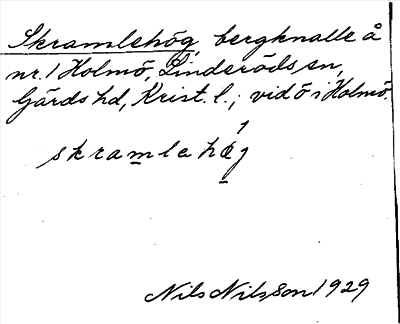 Skramlehög, bergknalle å
nr. 1 Holmö, Linderöds sn,
Gärds hd, Krist. l.; vid ö i Holmö.
skramlehǿg
Nils Nilsson 1929